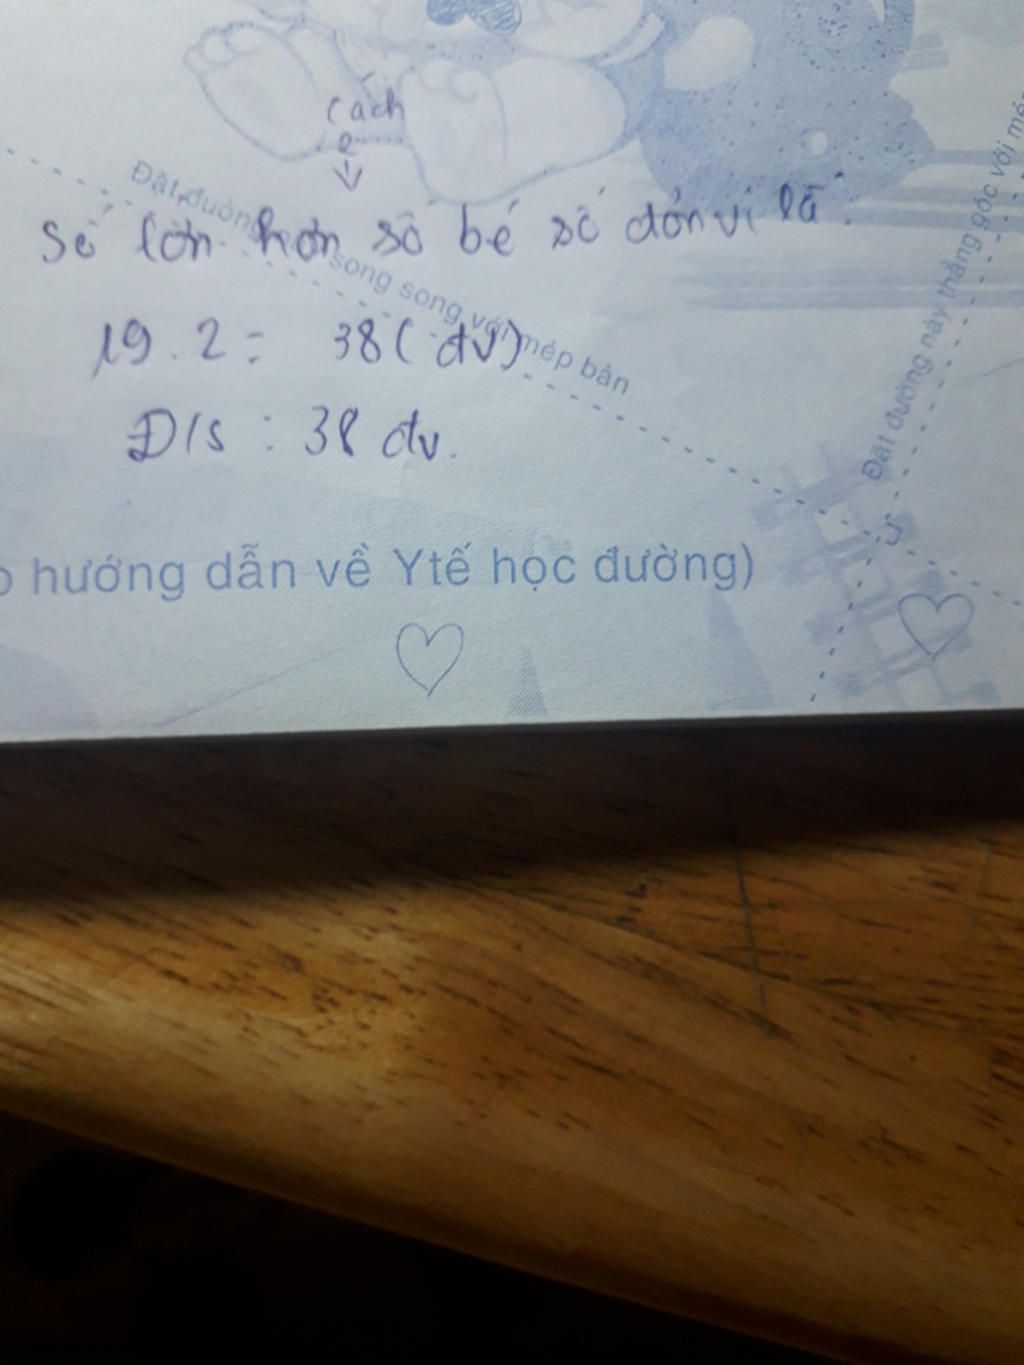 Cách
2
Đặt đường song song với mép bàn
Số lớn hơn số bé số đơn vị là:
19.2 = 38 (đv)
Đ/s : 38 đv.
Đặt đường này thẳng góc với mé
o hướng dẫn về Ytế học đường)